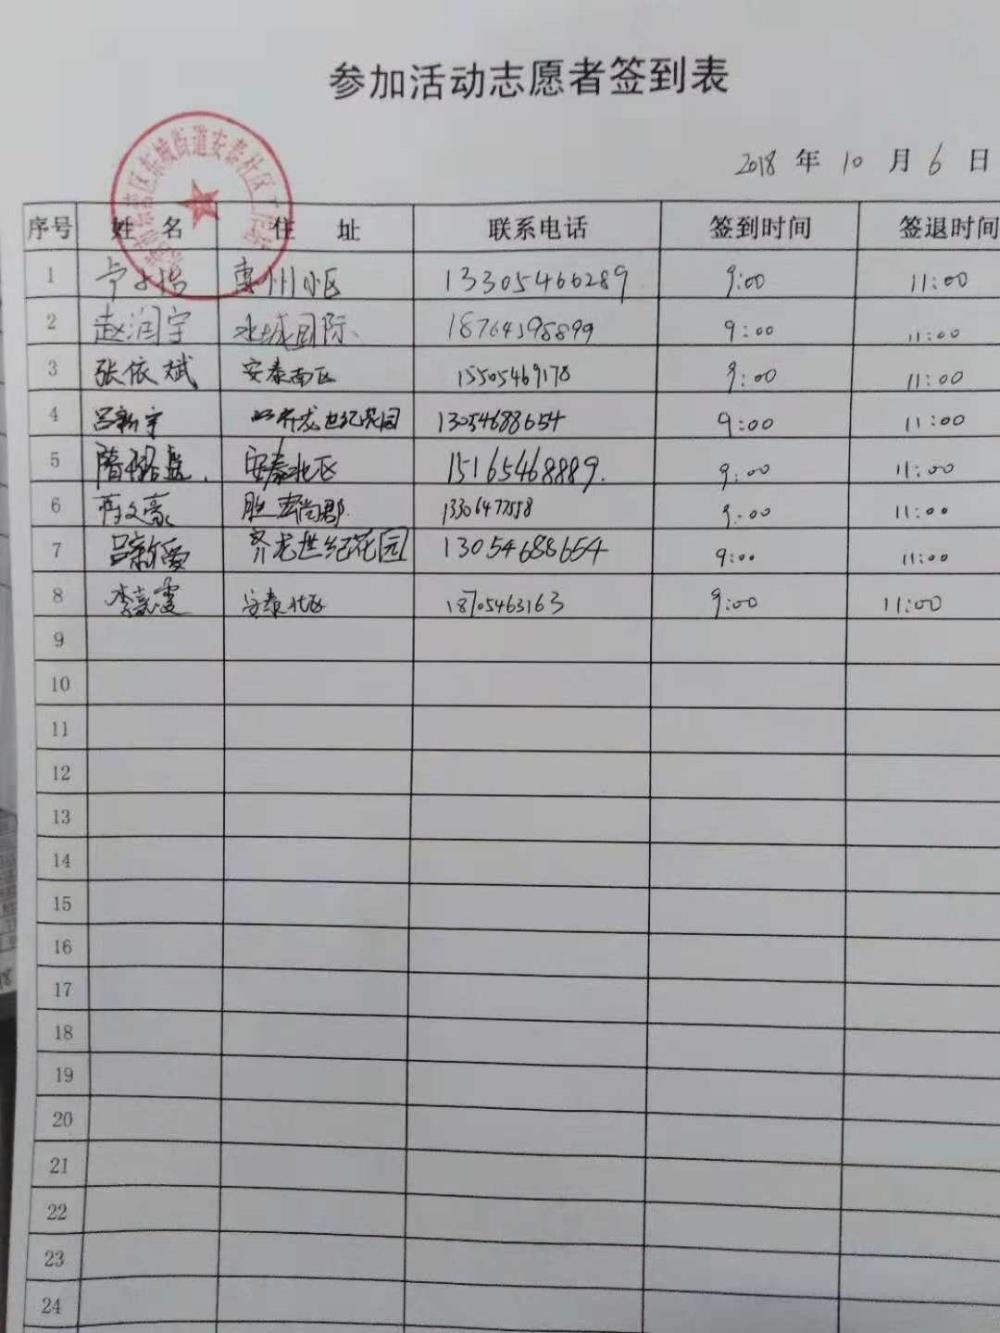 参加活动志愿者签到表
2018 年 10 月 6 日
序号 姓 名 住 址 联系电话 签到时间 签退时间
1 惠州小区 13305466289 9:00 11:00
2 赵润宇 水城国际、 18764398899 9:00 11:00
3 张依斌 安泰南区 15505469178 9:00 11:00
4 吕新宇 齐龙世纪花园 13054688654 9:00 11:00
5 隋 安泰北区 15165468889. 9:00 11:00
6 文豪 胜 尚郡 9:00 11:00
7 吕新爱 齐龙世纪花园 13054688654 9:00 11:00
8 李 安泰北区 18705463163 9:00 11:00
9
10
11
12
13
14
15
16
17
18
19
20
21
22
23
24
东城街道安泰社区